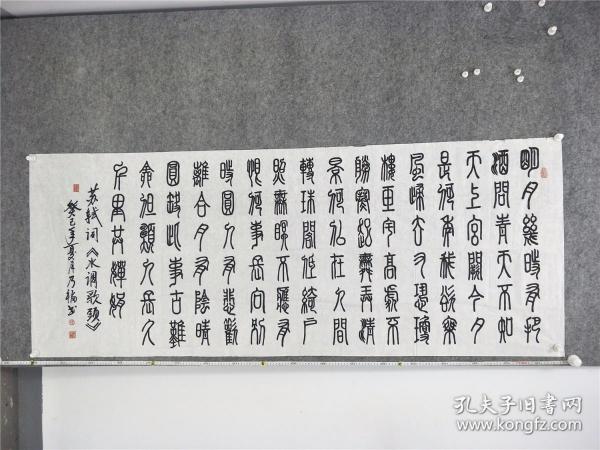 明月幾時有把
酒問青天不知
天上宮闕今夕
是何年我欲乘
風歸去又恐瓊
樓玉宇高處不
勝寒起舞弄清
景何似在人間
轉珠閣低綺戶
照無眠不應有
恨何事長向別
時圓人有悲歡
離合月有陰晴
圓缺此事古難
全但願人長久
千里共嬋娟
苏轼词《水调歌頭》
癸巳年夏月乃福书
孔夫子旧书网
www.kongfz.com